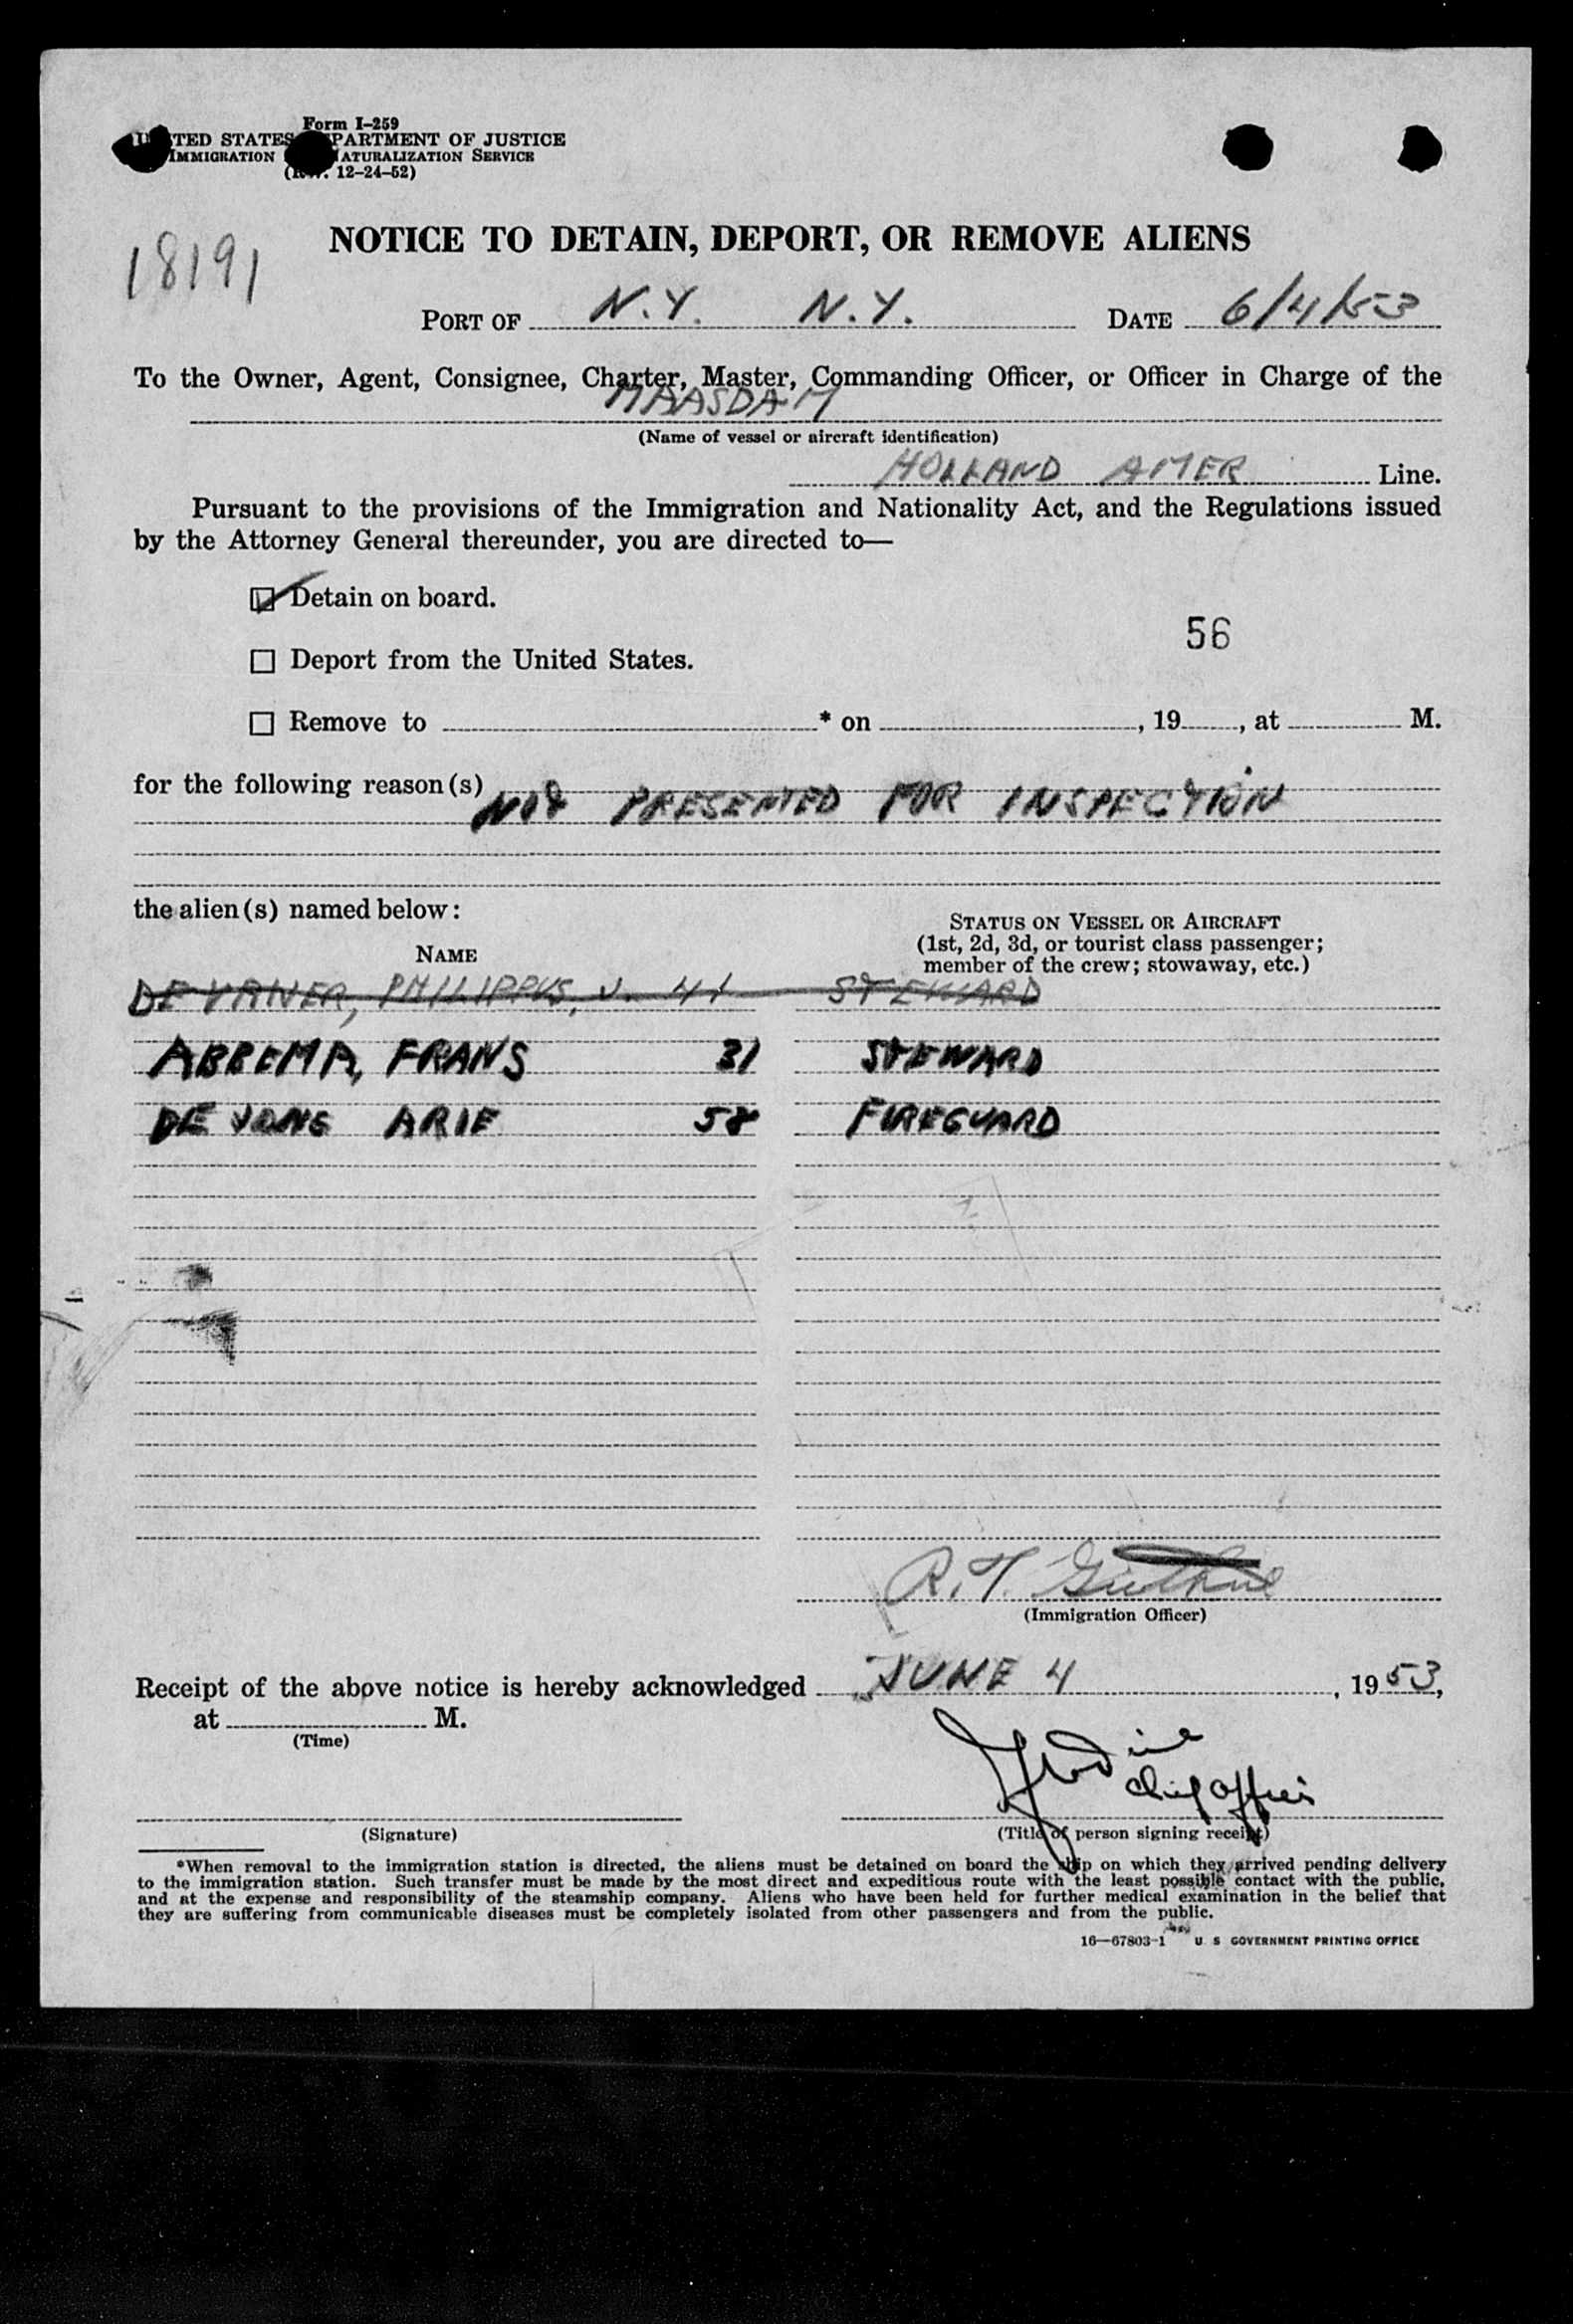 Form I-259
UNITED STATES DEPARTMENT OF JUSTICE
IMMIGRATION NATURALIZATION SERVICE
(Rev. 12-24-52)
18191
NOTICE TO DETAIN, DEPORT, OR REMOVE ALIENS
PORT OF N.Y. N.Y. DATE 6/4/53
To the Owner, Agent, Consignee, Charter, Master, Commanding Officer, or Officer in Charge of the
MAASDAM
(Name of vessel or aircraft identification)
HOLLAND AMER Line.
Pursuant to the provisions of the Immigration and Nationality Act, and the Regulations issued
by the Attorney General thereunder, you are directed to—
☑ Detain on board.
56
☐ Deport from the United States.
☐ Remove to * on , 19 , at M.
for the following reason(s)
NOT PRESENTED FOR INSPECTION
the alien(s) named below:
STATUS ON VESSEL OR AIRCRAFT
(1st, 2d, 3d, or tourist class passenger;
member of the crew; stowaway, etc.)
NAME
DE PHILIPPUS, J. 41 STEWARD
ABBEMA, FRANS 31 STEWARD
DE JONG ARIE 58 FIREGUARD
R.T. Guthrie
(Immigration Officer)
Receipt of the above notice is hereby acknowledged JUNE 4, 1953,
at M.
(Time)
Chief Officer
(Signature) (Title of person signing receipt)
*When removal to the immigration station is directed, the aliens must be detained on board the ship on which they arrived pending delivery
to the immigration station. Such transfer must be made by the most direct and expeditious route with the least possible contact with the public,
and at the expense and responsibility of the steamship company. Aliens who have been held for further medical examination in the belief that
they are suffering from communicable diseases must be completely isolated from other passengers and from the public.
16—67803-1 U S GOVERNMENT PRINTING OFFICE